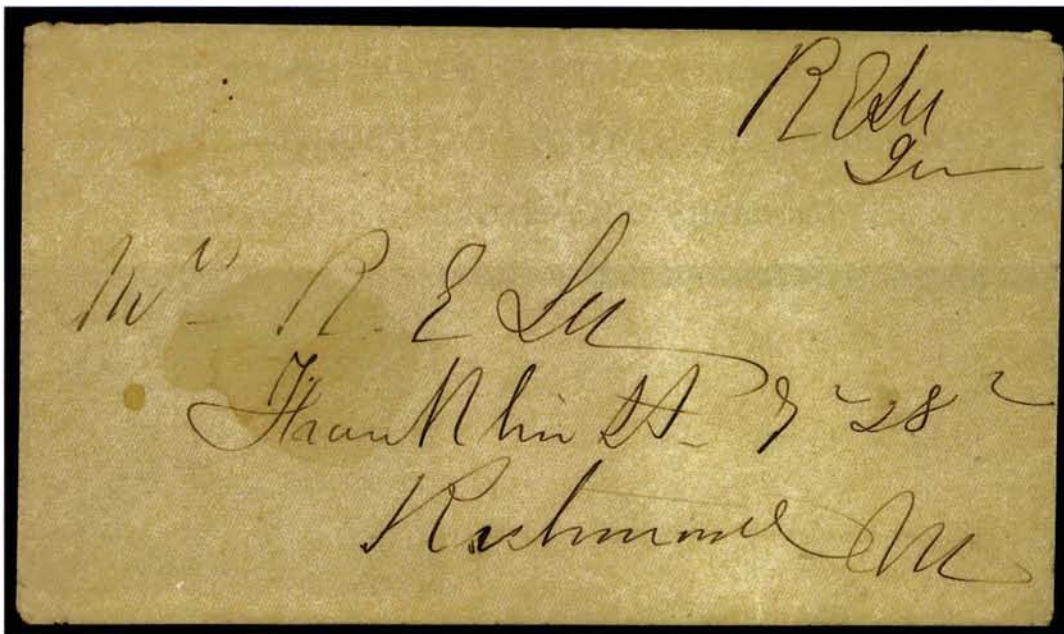 R E Lee
Gen
Mrs R. E Lee
Franklin St.
Richmond